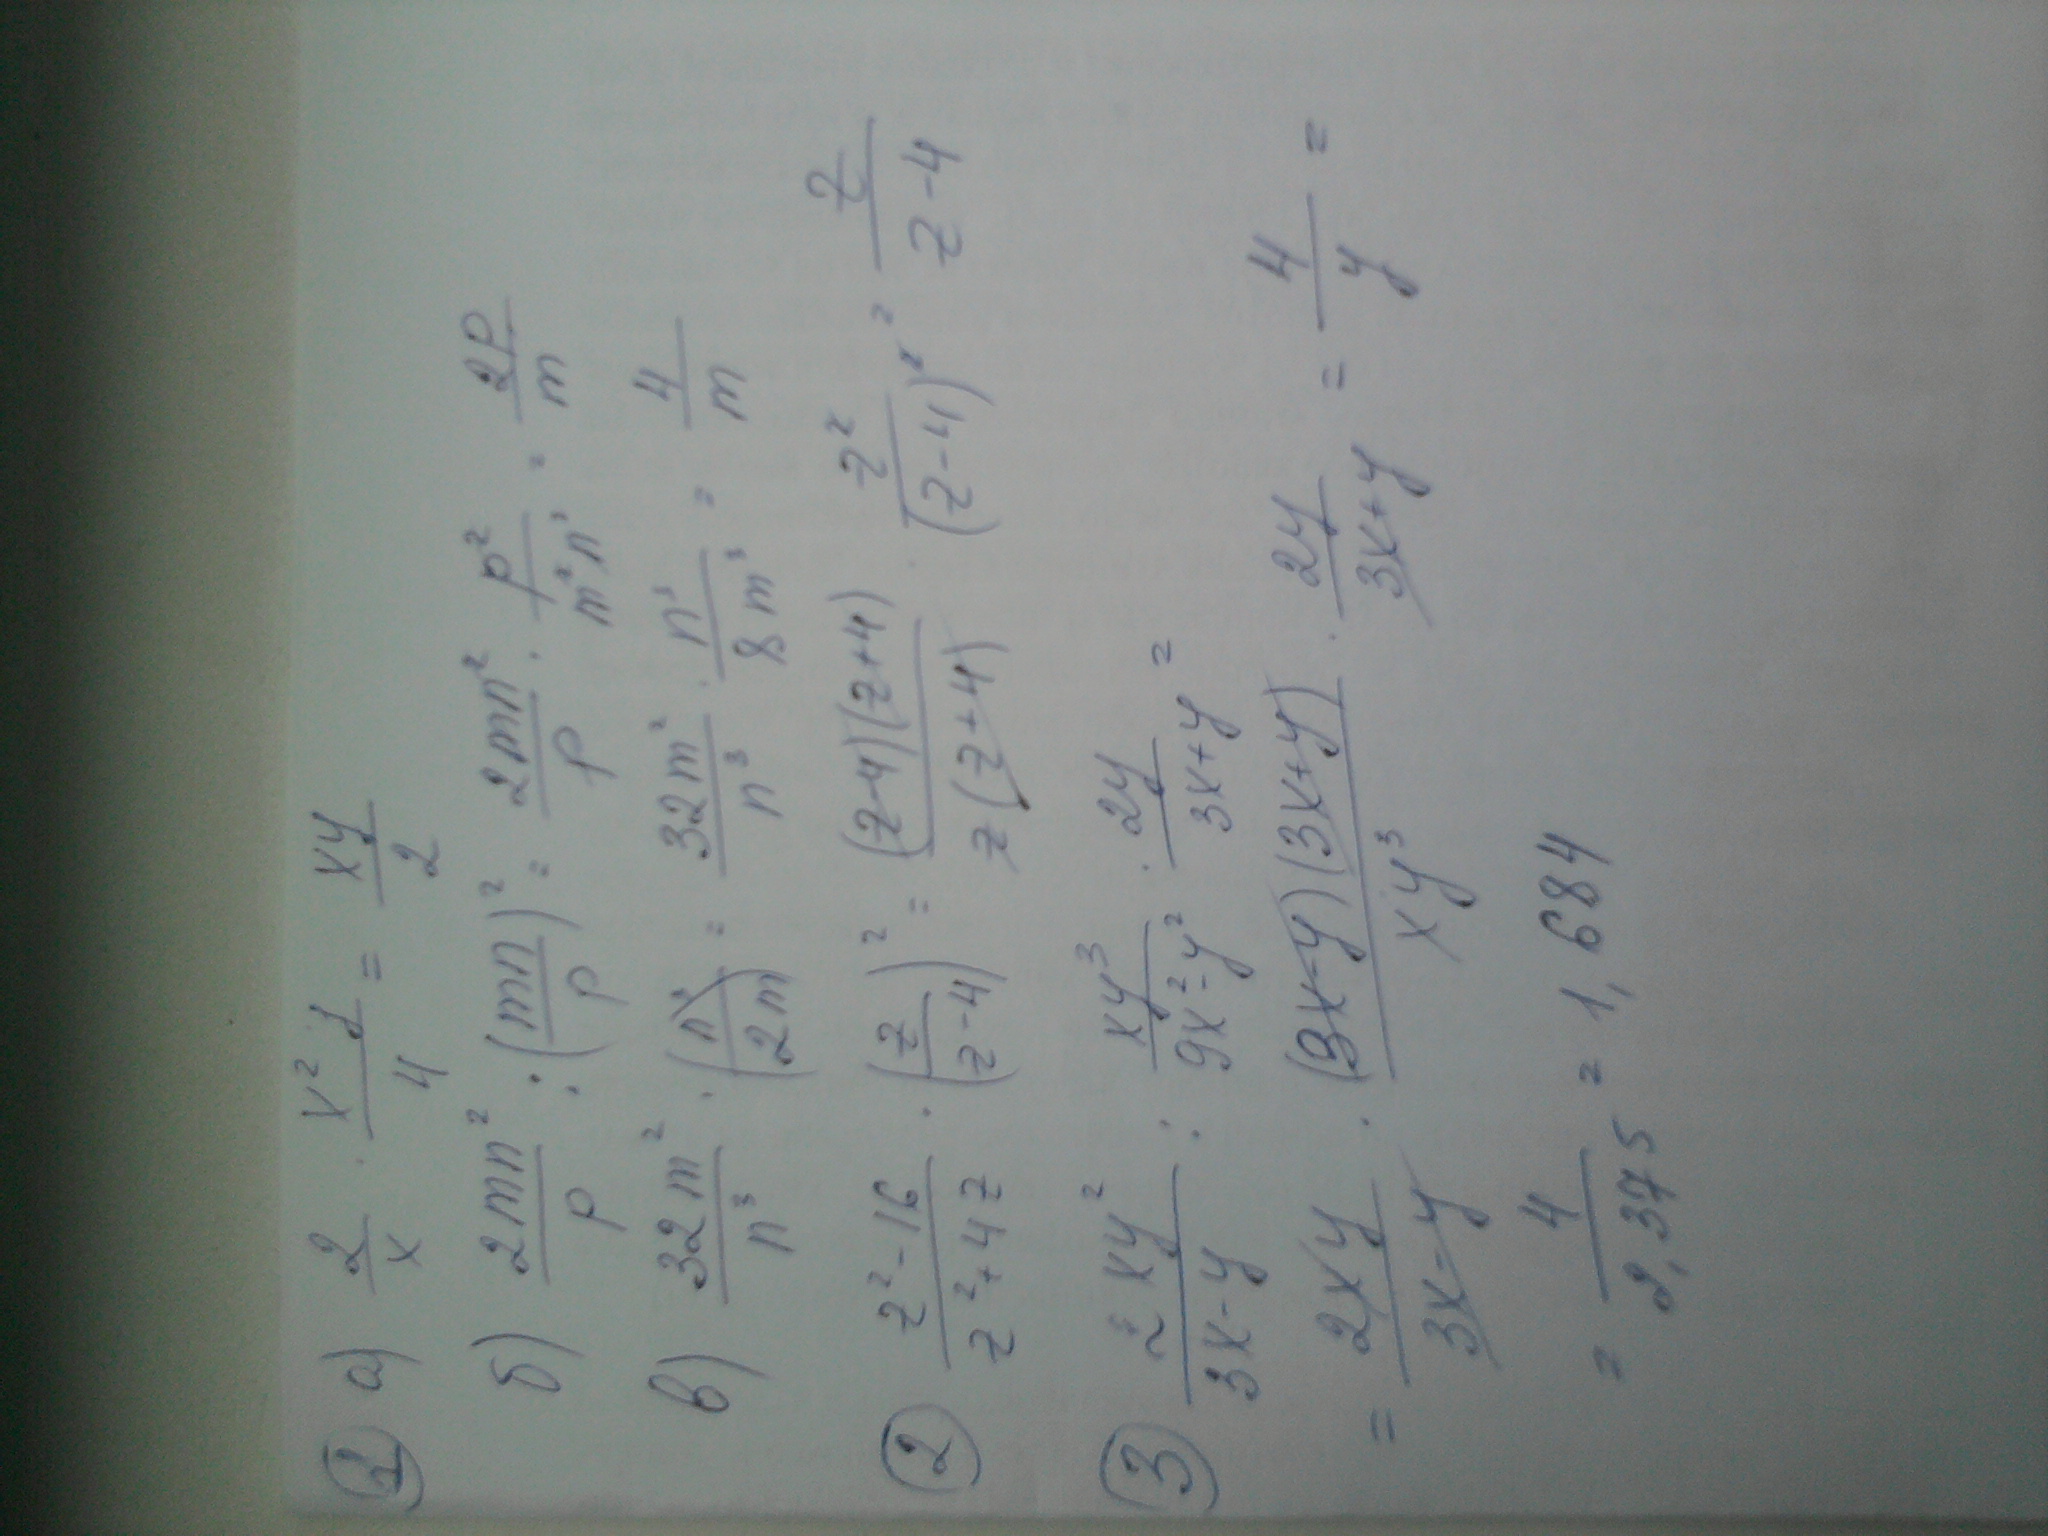 ① а) 2/x · x²y/4 = xy/2
б) 2mn²/p : (mn/p)² = 2mn²/p · p²/m²n² = 2p/m
в) 32m²/n³ · (n/2m)³ = 32m²/n³ · n³/8m³ = 4/m
② z²-16/z²+4z · (z/z-4)² = (z-4)(z+4)/z(z+4) · z²/(z-4)² = z/z-4
③ 2xy²/3x-y : xy³/9x²-y² · 2y/3x+y =
= 2xy²/3x-y · (3x-y)(3x+y)/xy³ · 2y/3x+y = 4/y =
= 4/2,375 = 1,684